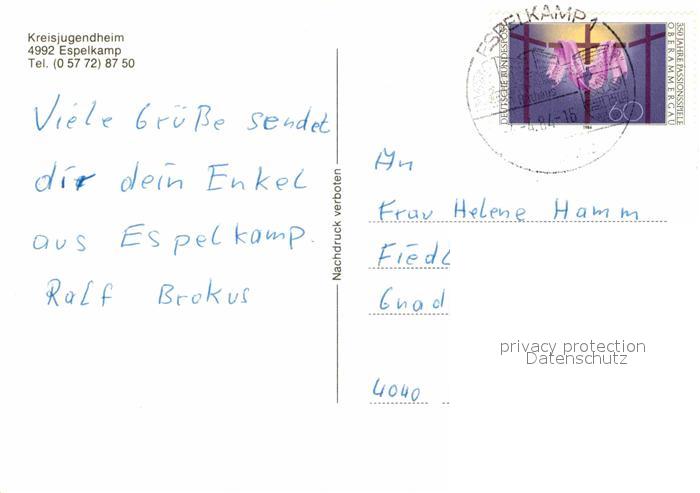 Kreisjugendheim
4992 Espelkamp
Tel. (0 57 72) 87 50
Viele Grüße sendet
dir dein Enkel
aus Espelkamp.
Ralf Brokus
Nachdruck verboten
ESPELKAMP 1
.84-16
DEUTSCHE BUNDESPOST
550 JAHRE PASSIONSSPIELE
OBERAMMERGAU
60
An
Frau Helene Hamm
Fiedl
Gnad
4040
privacy protection
Datenschutz